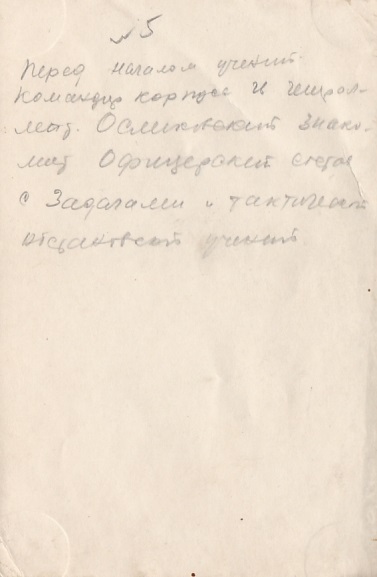 №5
Перед началом учений
Командир корпуса и генерал-
лейт. Осликовский знако-
мит офицерский состав
с задачами и тактической
обстановкой учений